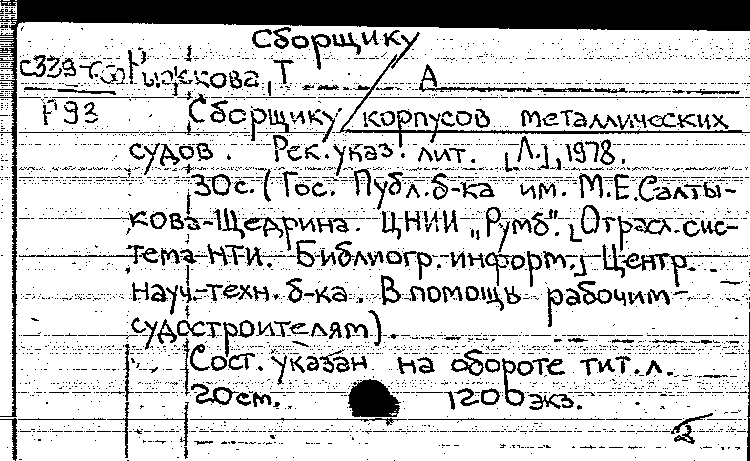 Сборщику
с339 Рыжкова, Т А
Р93 Сборщику корпусов металлических
судов. Рек. указ. лит. [Л.], 1978.
30с. (Гос. Публ. б-ка им. М.Е.Салты-
кова-Щедрина. ЦНИИ "Румб". [Отрасл. сис-
тема НТИ. Библиогр. информ.] Центр.
науч.-техн. б-ка. В помощь рабочим-
судостроителям).
Сост. указан на обороте тит. л.
20см. 1200экз.
2